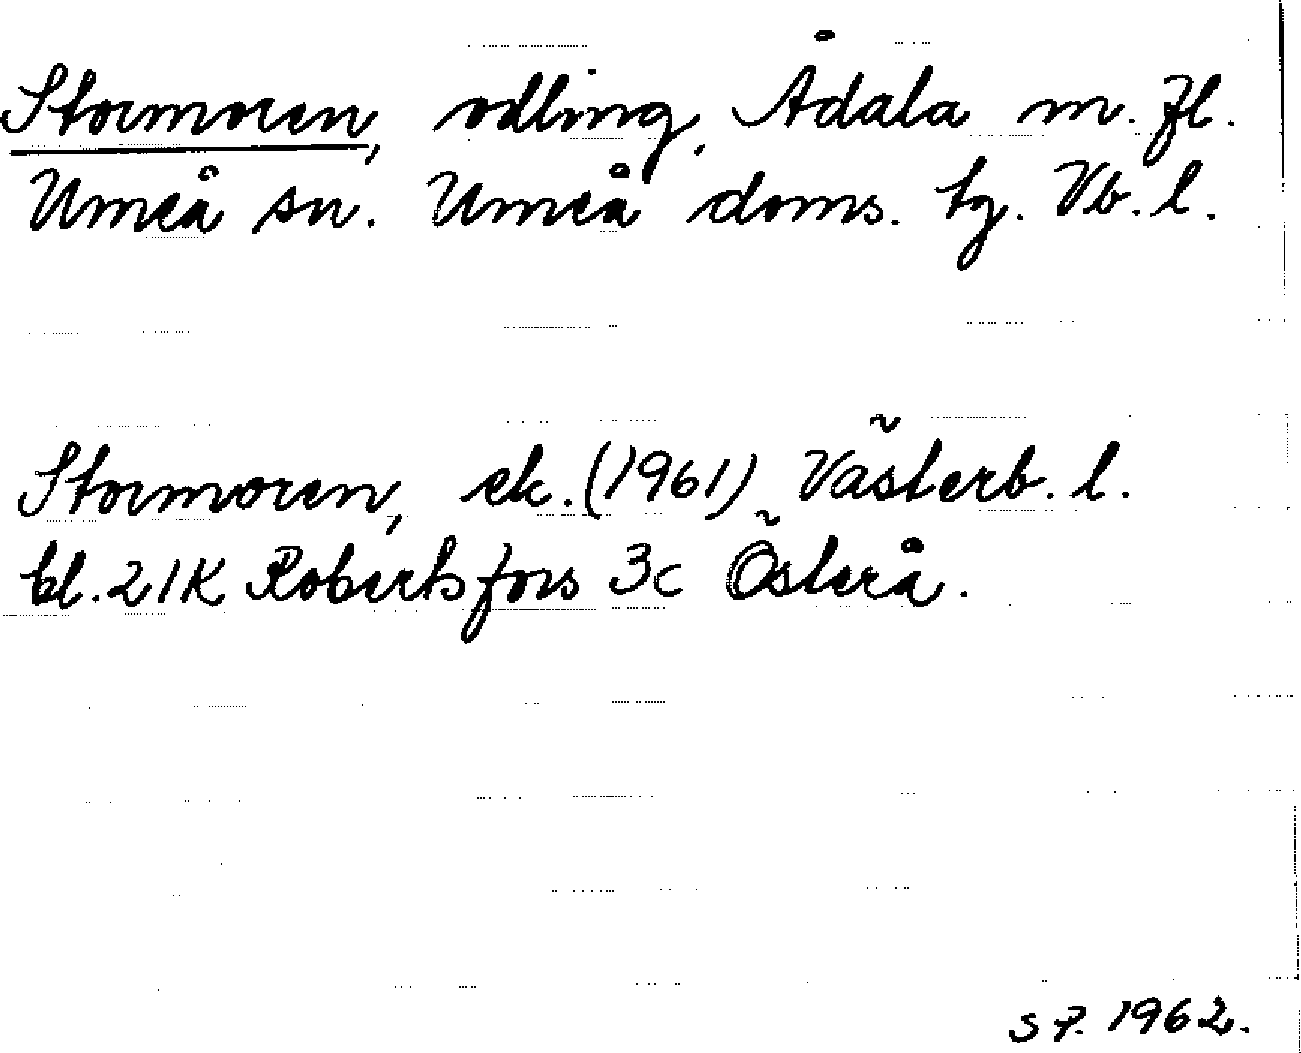 Stormoren, odling, Ådala m. fl.
Umeå sn. Umeå doms. tg. Vb. l.
Stormoren, ek. (1961) Västerb. l.
bl. 21K Robertsfors 3c Österå.
S P. 1962.